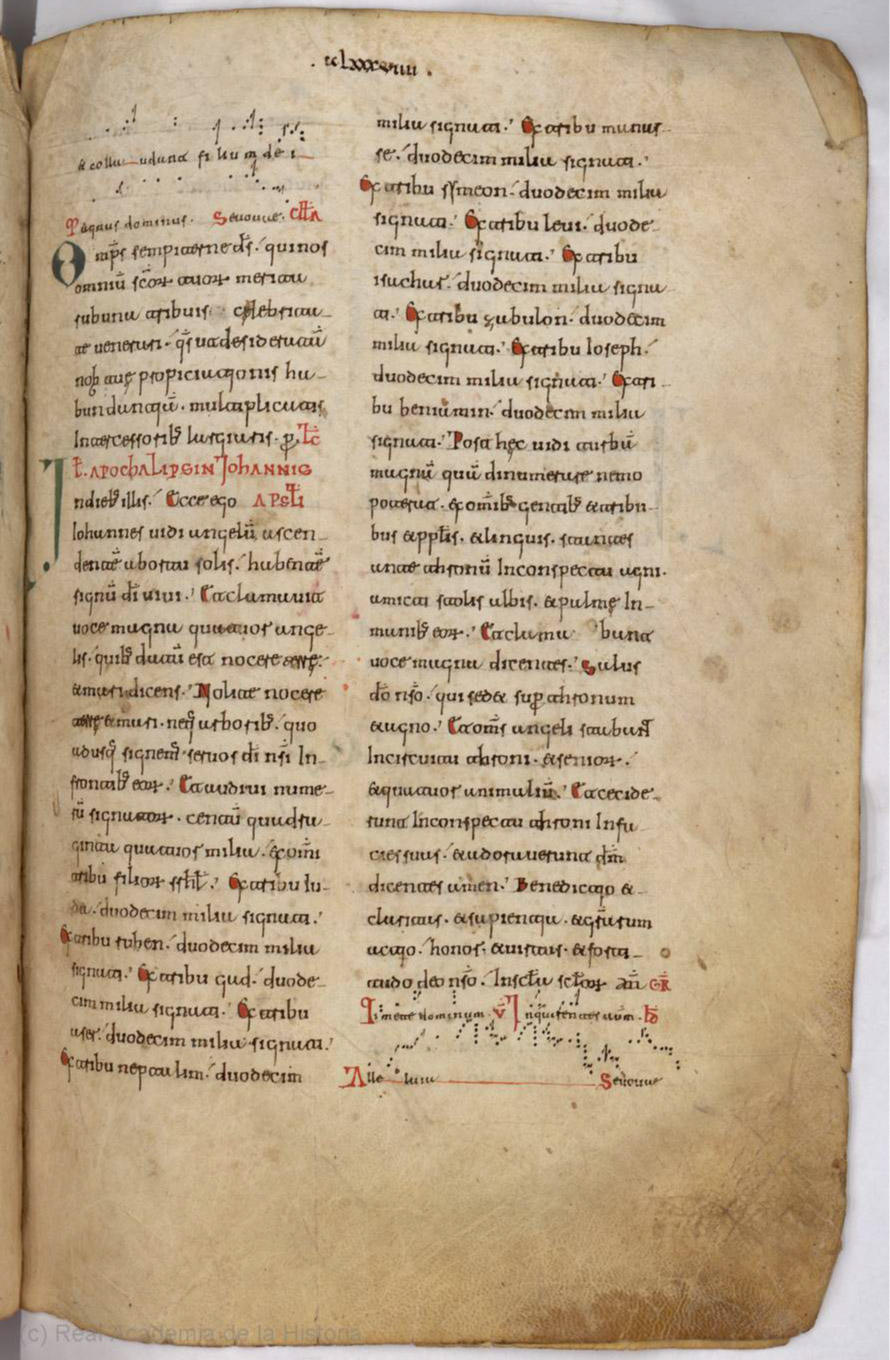 . clxxxviiii .
& collaudant filium dei
P̃. Magnus dominus. Seuouae. Cɫɫa
Omp̄s sempiterne d̄s. qui nos
omniū sc̄orꝝ tuorꝝ merita
sub una tribuis celebrita
te uenerari. q̄s ut desideratā
nob̄ tuę propiciationis ha
bundantiā. multiplicatis
Intercessorib; largiaris. p̱. Lc̄
Ɫ. APOCHALIPSIN IOHANNIS
Indieb; illis. Ecce ego APSɫI
Iohannes uidi angelū ascen
dentē ab ortu solis. habentē
signū dī uiui. Et clamauit
uoce magna quatuor ange
lis. quib; datū est nocere terrę
& mari dicens. Nolite nocere
terrę & mari. neq; arborib; quo
adusq; signem̄ seruos dī nr̄i In
frontib; eorꝝ. Et audiui nume
rū signatorꝝ. centū quadra
ginta quatuor milia. ex om̄i
tribu filiorꝝ isrɫ. Ex tribu Iu
da. duodecim milia signati.
Ex tribu ruben. duodecim milia
signati. Ex tribu gad. duode
cim milia signati. Ex tribu
aser. duodecim milia signati.
Ex tribu neptalim. duodecim
milia signati. Ex tribu manas
se. duodecim milia signati.
Ex tribu symeon. duodecim milia
signati. Ex tribu leui. duode
cim milia signati. Ex tribu
isachar. duodecim milia signa
ti. Ex tribu zabulon. duodecim
milia signati. Ex tribu Ioseph.
duodecim milia signati. Ex tri
bu beniamin. duodecim milia
signati. Post hęc uidi turbā
magnā quā dinumerare nemo
poterat. ex om̄ib; gentib; & tribu
bus & ppɫis. & linguis. stantes
ante thronū In conspectu agni.
amicti stolis albis. & palmę In
manib; eorꝝ. Et clama bant
uoce magna dicentes. Salus
dō nr̄o. qui sedet sup̱ thronum
& agno. Et om̄s angeli stabant
In circuitu throni. & seniorꝝ.
& quatuor animaliū. Et cecide
runt In conspectu throni In fa
cies suas. & adorauerunt dm̄
dicentes amen. Benedictio &
claritas. & sapientia. & gr̄arum
actio. honor. & uirtus. & forti
tudo deo nr̄o. In scɫa scɫorꝝ am̄ GR̄
Timete dominum. V̄ Inquirentes autm̄. b̄d
Alleluia Seuouae